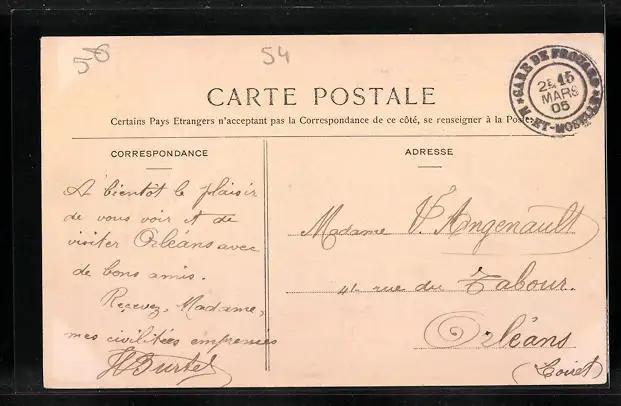 56
54
CARTE POSTALE
Certains Pays Etrangers n'acceptant pas la Correspondance de ce côté, se renseigner à la Poste.
GARE DE FROUARD
2E 15
MARS
05
M.-ET-MOSELLE
CORRESPONDANCE
A bientôt le plaisir
de vous voir et de
visiter Orléans avec
de bons amis.
Recevez, Madame,
mes civilités empressées
HBurtel
ADRESSE
Madame V. Angenault
41 rue du Tabour.
Orléans
(Loiret)